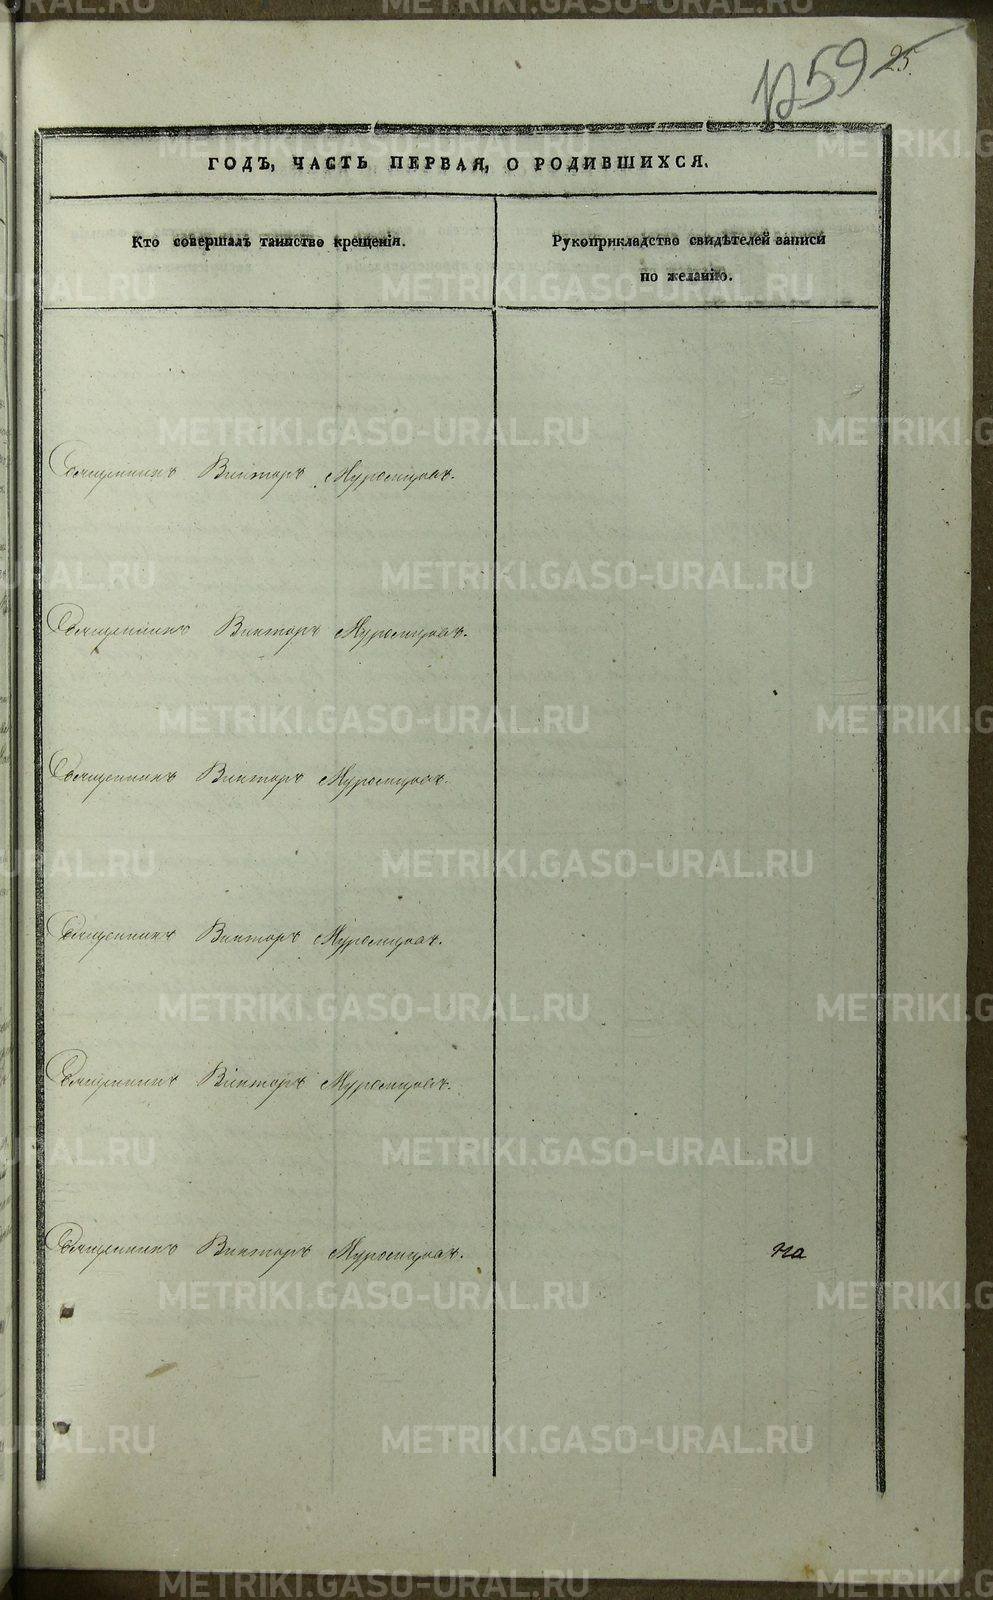 1259
25.
ГОДЪ, ЧАСТЬ ПЕРВАЯ, О РОДИВШИХСЯ.
Кто совершалъ таинство крещенія.
Рукоприкладство свидѣтелей записи
по желанію.
Священникъ Викторъ Муромцовъ.
Священникъ Викторъ Муромцовъ.
Священникъ Викторъ Муромцовъ.
Священникъ Викторъ Муромцовъ.
Священникъ Вікторъ Муромцовъ.
Священникъ Викторъ Муромцовъ.
на
METRIKI.GASO-URAL.RU